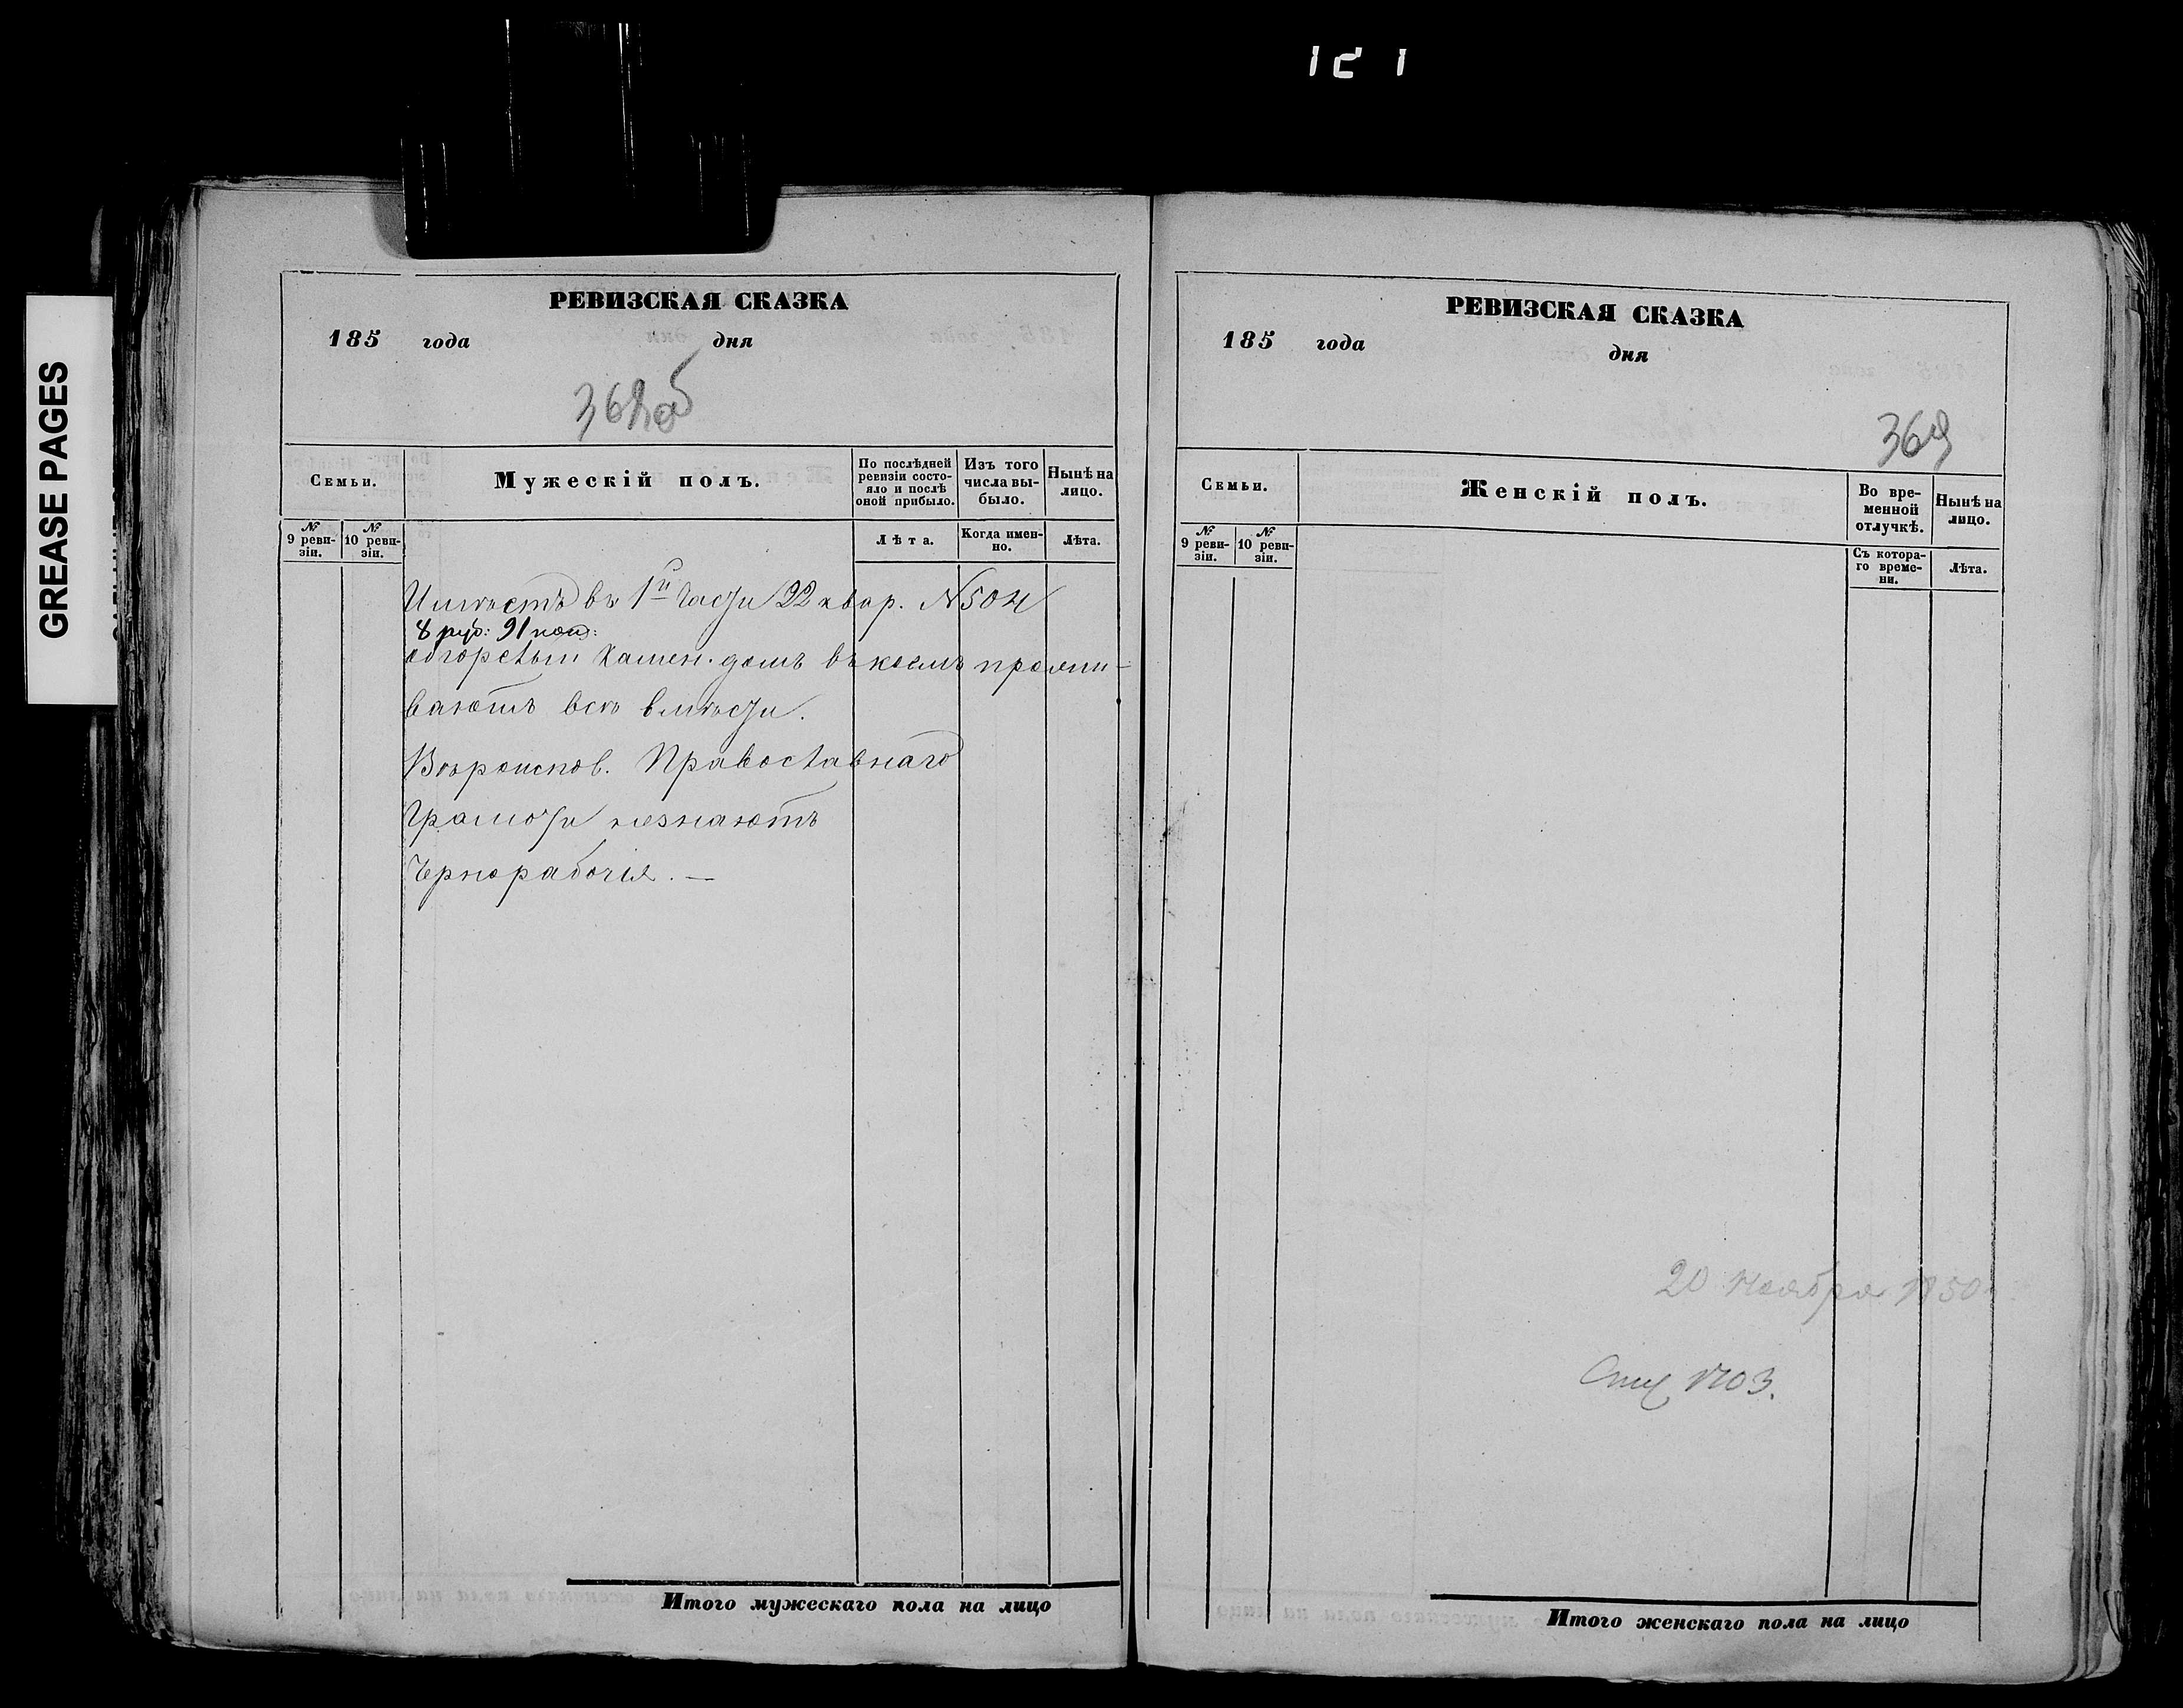 121
GREASE PAGES
РЕВИЗСКАЯ СКАЗКА
185 года дня
368об
Семьи.
Мужескій полъ.
По послѣдней ревизіи состояло и послѣ оной прибыло.
Изъ того числа выбыло.
Нынѣ на лицо.
№ 9 ревизіи.
№ 10 ревизіи.
Лѣта.
Когда именно.
Лѣта.
Имѣетъ въ 1й части 22 квар. №504
8 руб: 91 коп:
обгорелый камен. домъ въ коемъ прожи-
ваютъ всѣ вмѣсти.
Вѣроиспов. Православнаго
Грамоти незнаютъ
Чернорабочія. —
Итого мужескаго пола на лицо
РЕВИЗСКАЯ СКАЗКА
185 года дня
369
Семьи.
Женскій полъ.
Во временной отлучкѣ.
Нынѣ на лицо.
№ 9 ревизіи.
№ 10 ревизіи.
Съ котораго времени.
Лѣта.
20 Ноября 1850
1703.
Итого женскаго пола на лицо